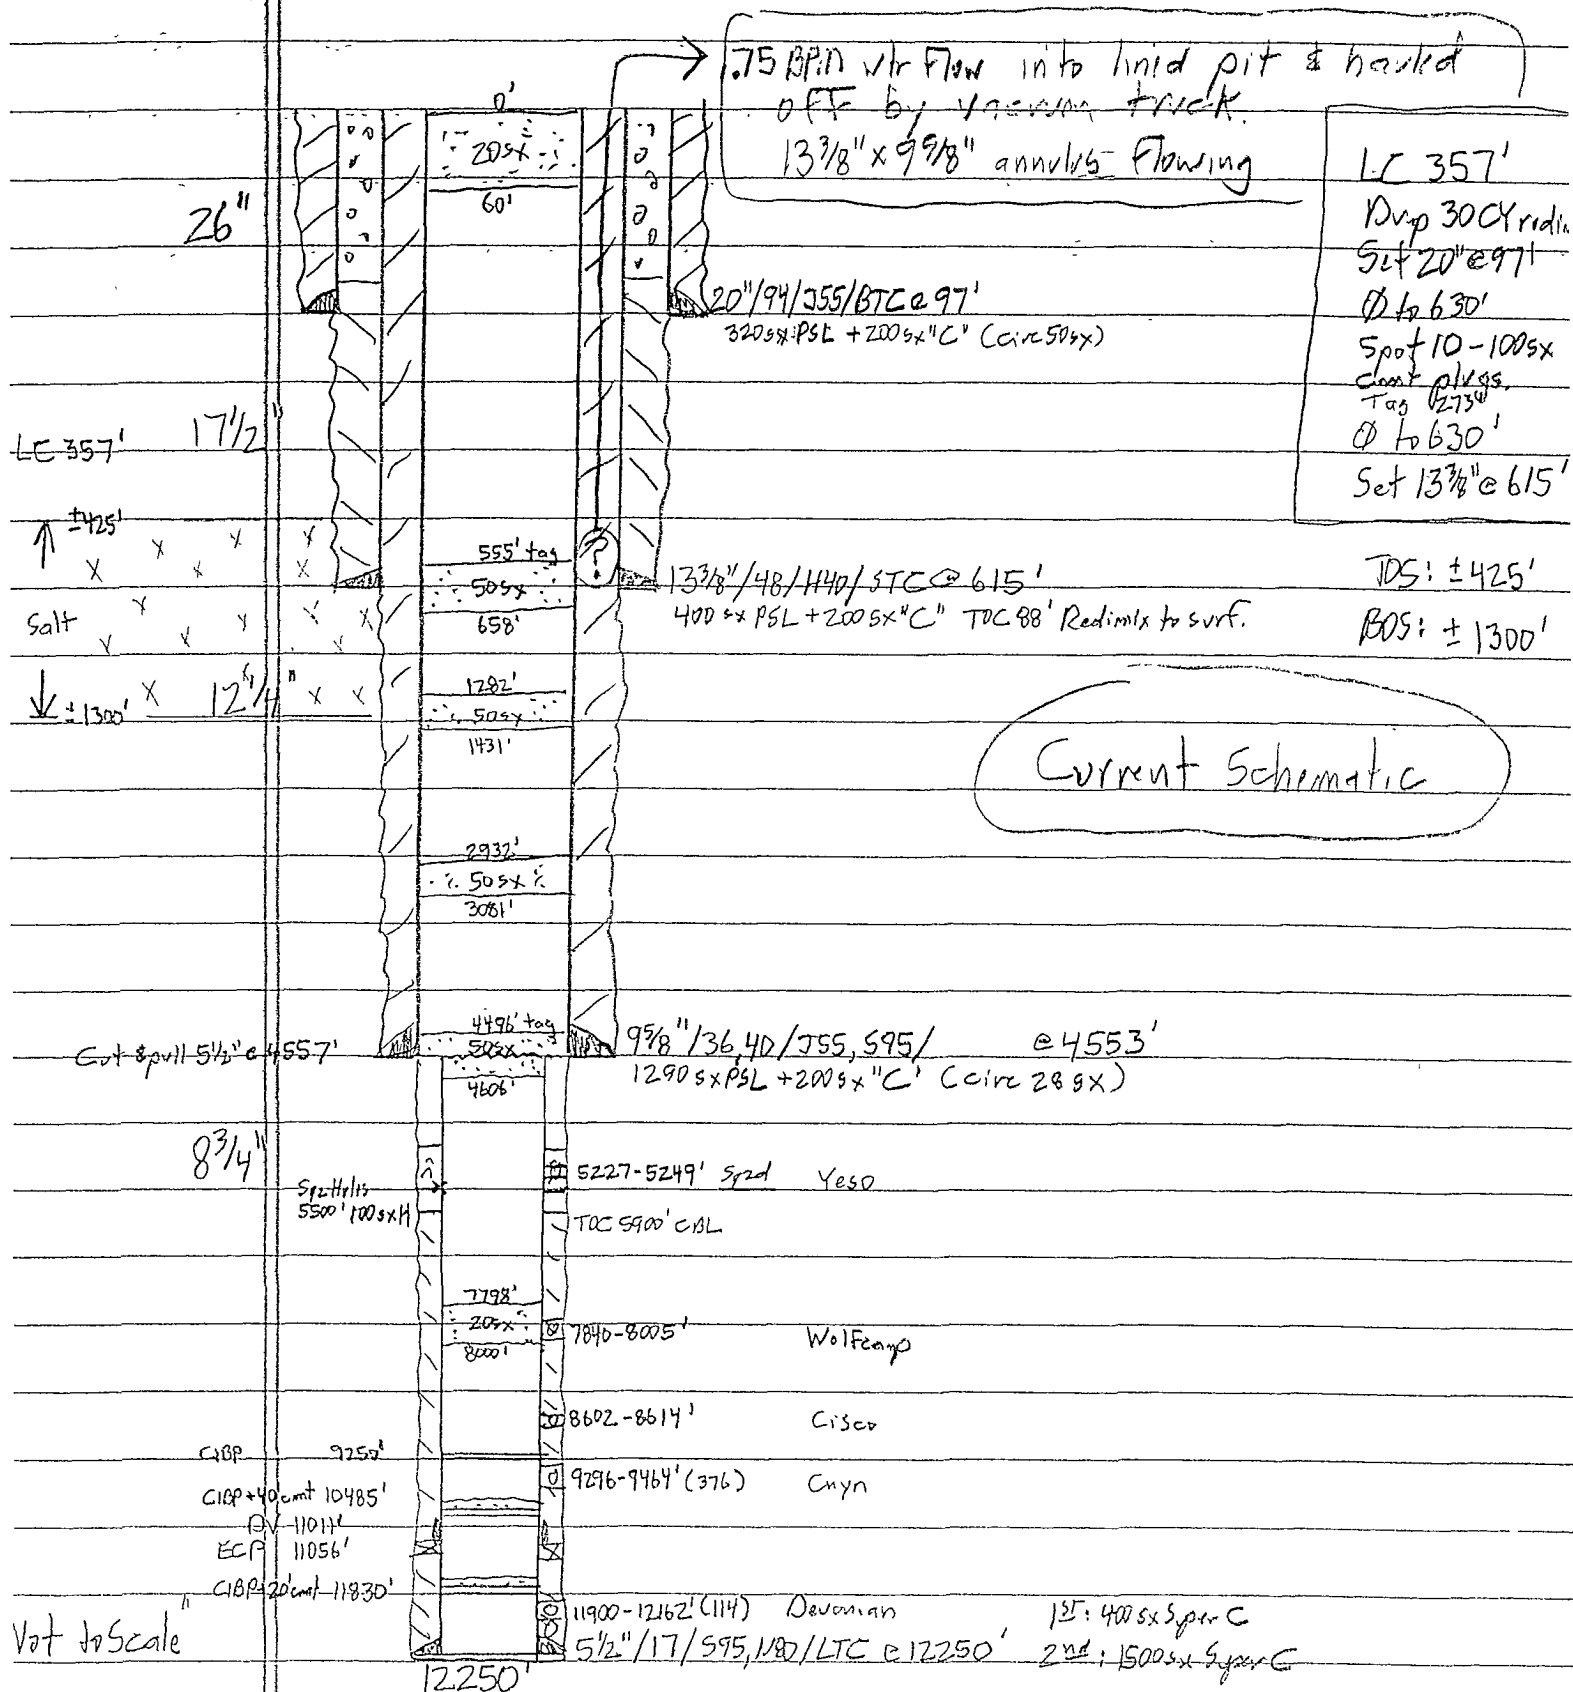 .75 BPM wtr Flow into linid pit & hauled
off by vacuum truck.
13 3/8" x 9 5/8" annulus Flowing
0'
20sx
60'
26"
LC 357'
Dump 30CY redi
Set 20"@97'
Ø to 630'
Spot 10-100sx
cmt plugs.
Tag 273'
Ø to 630'
Set 13 3/8"@ 615'
20"/94/J55/BTC@97'
320sx PSL +200sx"C" (circ 50sx)
LC 357'
17 1/2"
±425'
Salt
±1300'
12 1/4"
555' tag
50sx
658'
?
13 3/8"/48/H40/STC@ 615'
400 sx PSL +200sx"C" TOC 88' Redimix to surf.
TOS: ±425'
BOS: ±1300'
1282'
50sx
1431'
Current Schematic
2932'
50sx
3081'
4496' tag
50sx
4606'
Cut & pull 5 1/2" @ 4557'
9 5/8"/36,40/J55, S95/ @ 4553'
1290 sx PSL +200sx "C" (circ 28 sx)
8 3/4"
Sqz Holes
5500' 100sxH
5227-5249' Sqzd Yeso
TOC 5900' CBL
7798'
20sx
8000'
7840-8005' Wolfcamp
8602-8614' Cisco
CIBP 9250'
9296-9464' (376) Cnyn
CIBP+40'cmt 10485'
DV 11011'
ECP 11056'
CIBP+20'cmt 11830'
11900-12162' (114) Devonian
1st: 400sx Super C
Not to Scale
5 1/2"/17/S95,N80/LTC @ 12250'
2nd: 1500sx Super C
12250'